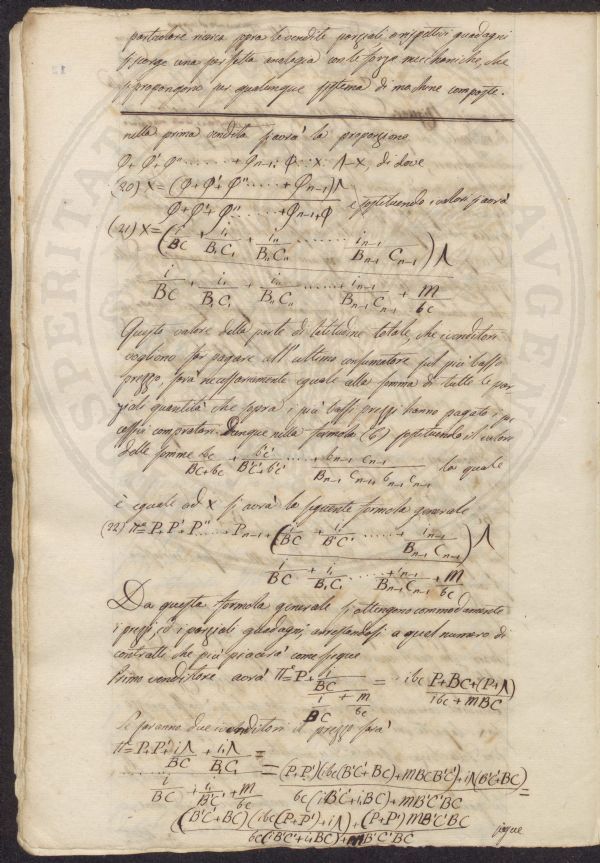 particolare merca sopra le vendite parziali a rispettivi guadagni
si scorge una perfetta analogia con le forze meccaniche, che
si propongono per qualunque sistema di machine composte.
nella prima vendita si avrà la proporzione
φ+φ'+φ''......+φn-1: φ...X: Λ-X, di dove
(20) X=(φ+φ'+φ''.....+φn-1)Λ
φ+φ'+φ''......+φn-1+φ e sostituendo i valori si avrà
(21) X=(i/BC + i,/B,C, + in/BnCn ...... in-1/Bn-1 Cn-1)Λ
i/BC + i,/B,C, + in/BnCn .....+ in-1/Bn-1 Cn-1 + m/bc
Questo valore della parte di latitudine totale, che i venditori
vogliono far pagare all'ultimo consumatore sul più basso
prezzo, sarà necessariamente eguale alla somma di tutte le par
ziali quantità che sopra i più bassi prezzi hanno pagato i
cessivi compratori. Dunque nella formola (6) sostituendo il valore
delle somme bc/BC+bc + b'c'/B'C'+b'c' ......+ bn-1 cn-1/Bn-1 Cn-1+bn-1 cn-1 la quale
è eguale ad X si avrà la seguente formola generale
(22) π=P+P'+P''.....+Pn-1+(i/BC + i,/B'C' ......+ in-1/Bn-1 Cn-1)Λ
i/BC + i,/B,C, .....+ in-1/Bn-1 Cn-1 + m/bc
Da questa formola generale si ottengono commodamente
i prezzi, ed i parziali guadagni, arrestandosi a quel numero di
contratti che più piacerà come segue
Primo venditore avrà π=P+ i/BC / i/BC + m/bc = ibc P+BC+(P+Λ)/ibc+mBC
Se saranno due i venditori il prezzo sarà
π=P+P'+ iΛ/BC + i,Λ/B,C, =
i/BC + i,/B'C' + m/bc = (P+P')(ibc(B'C'+BC)+mBCB'C')+iΛ(B'C'+BC) =
bc(iB'C'+i,BC)+mB'C'BC
(B'C'+BC)(ibc(P+P')+iΛ)+(P+P')mB'C'BC
bc(iB'C'+i,BC)+mB'C'BC
segue